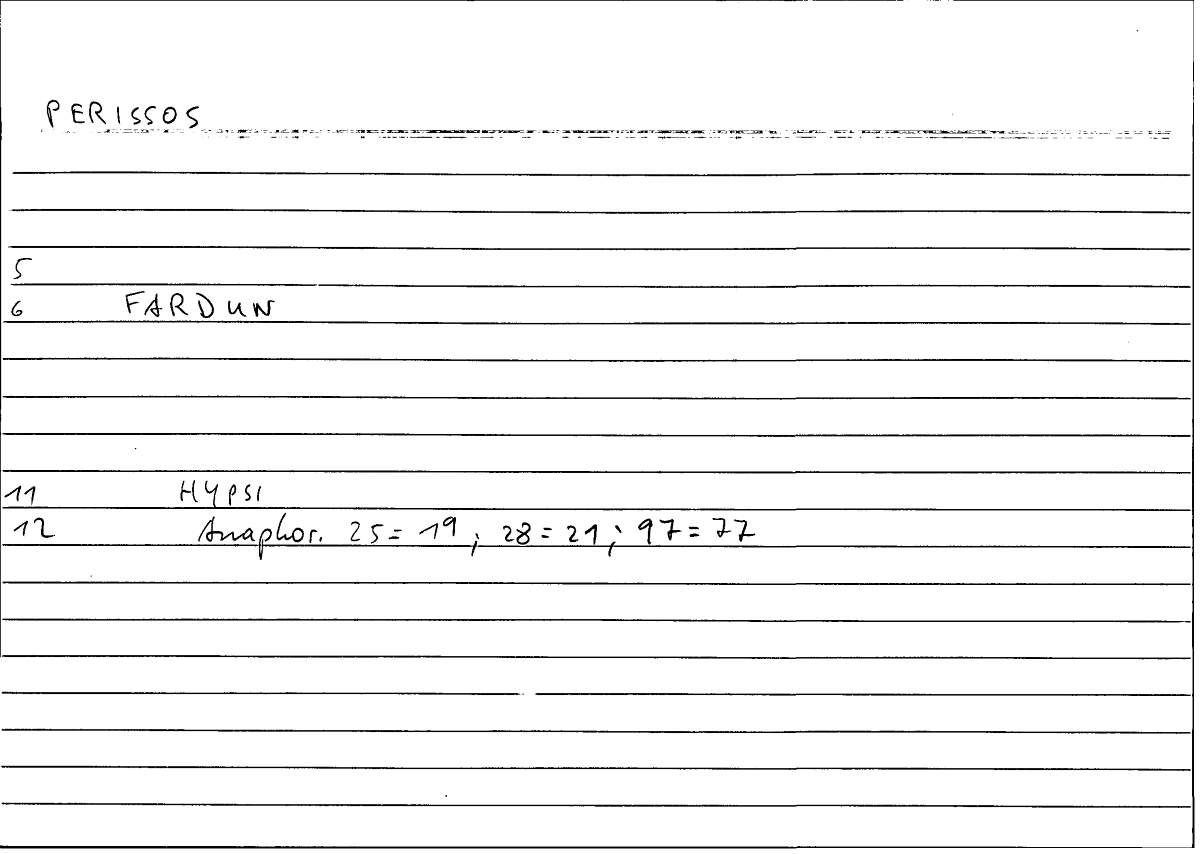 PERISSOS
5
6 FARDUN
11 HYPSI
12 Anaphor. 25 = 19 ; 28 = 21 ; 97 = 77